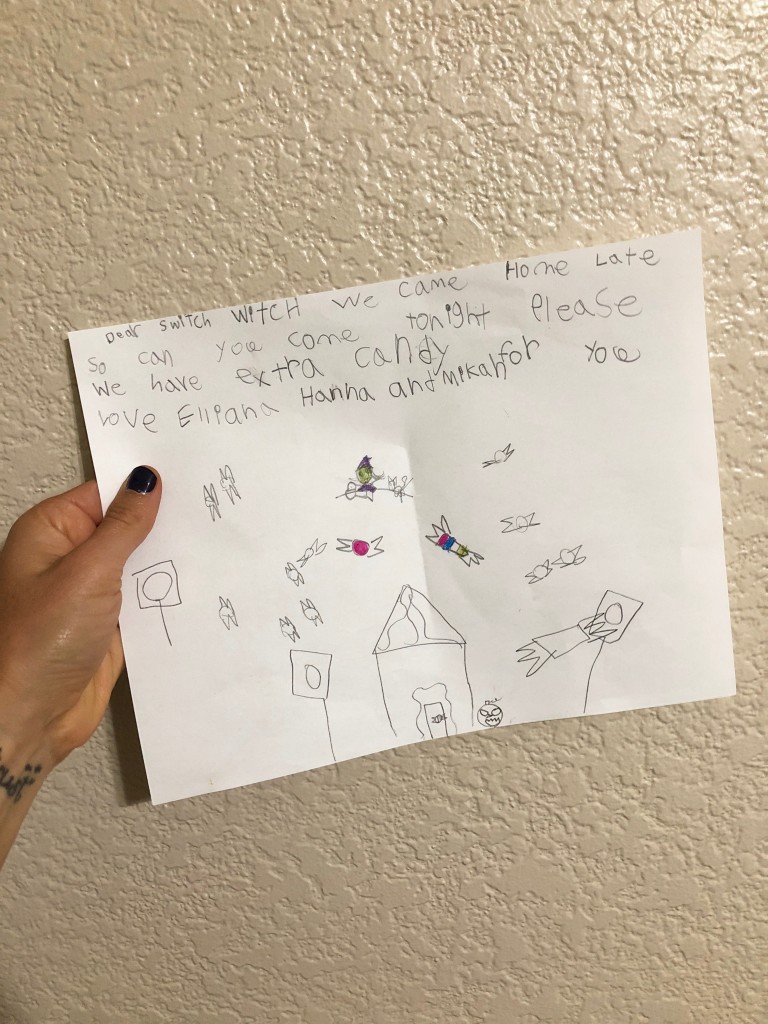 Dear Switch WitcH We came Home Late
So can you come tonight Please
We have extra candy for you
Love Elliana Hanna and Mikah